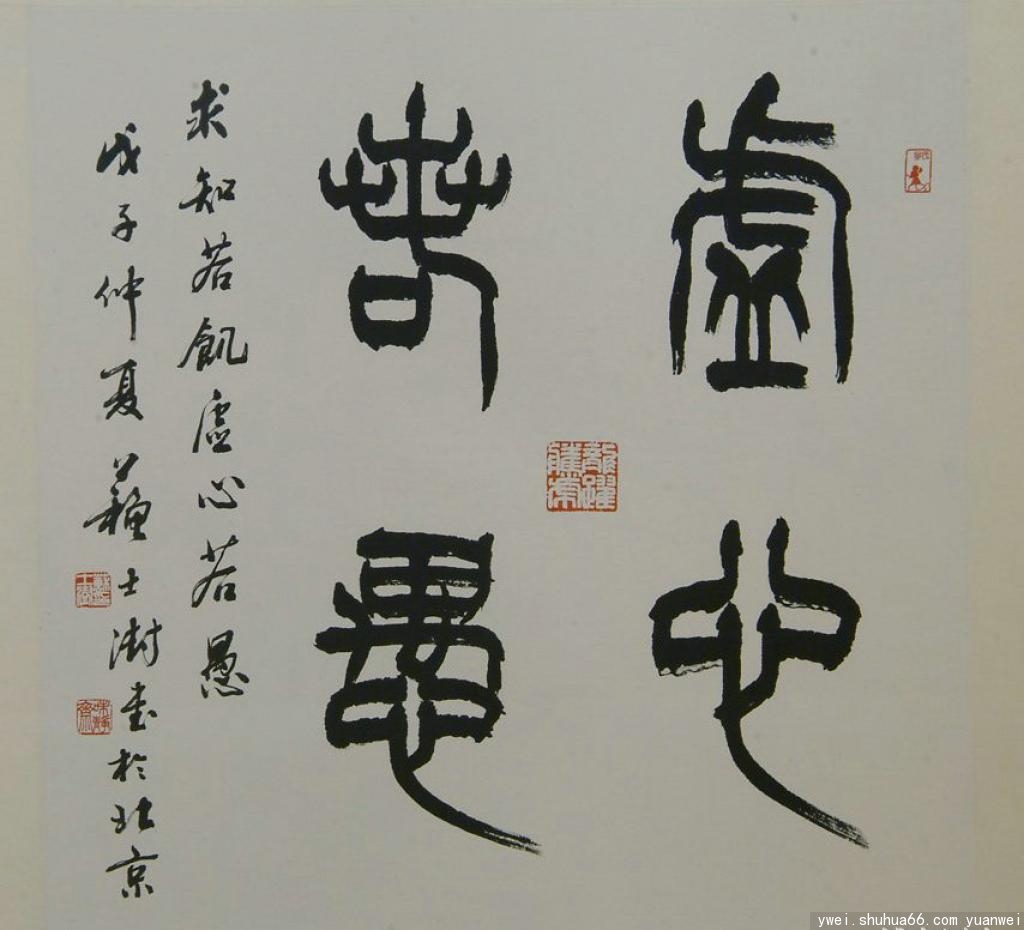 虛心
若愚
求知若飢虛心若愚
戊子仲夏蘇士澍書於北京
ywei.shuhua66.com yuanwei